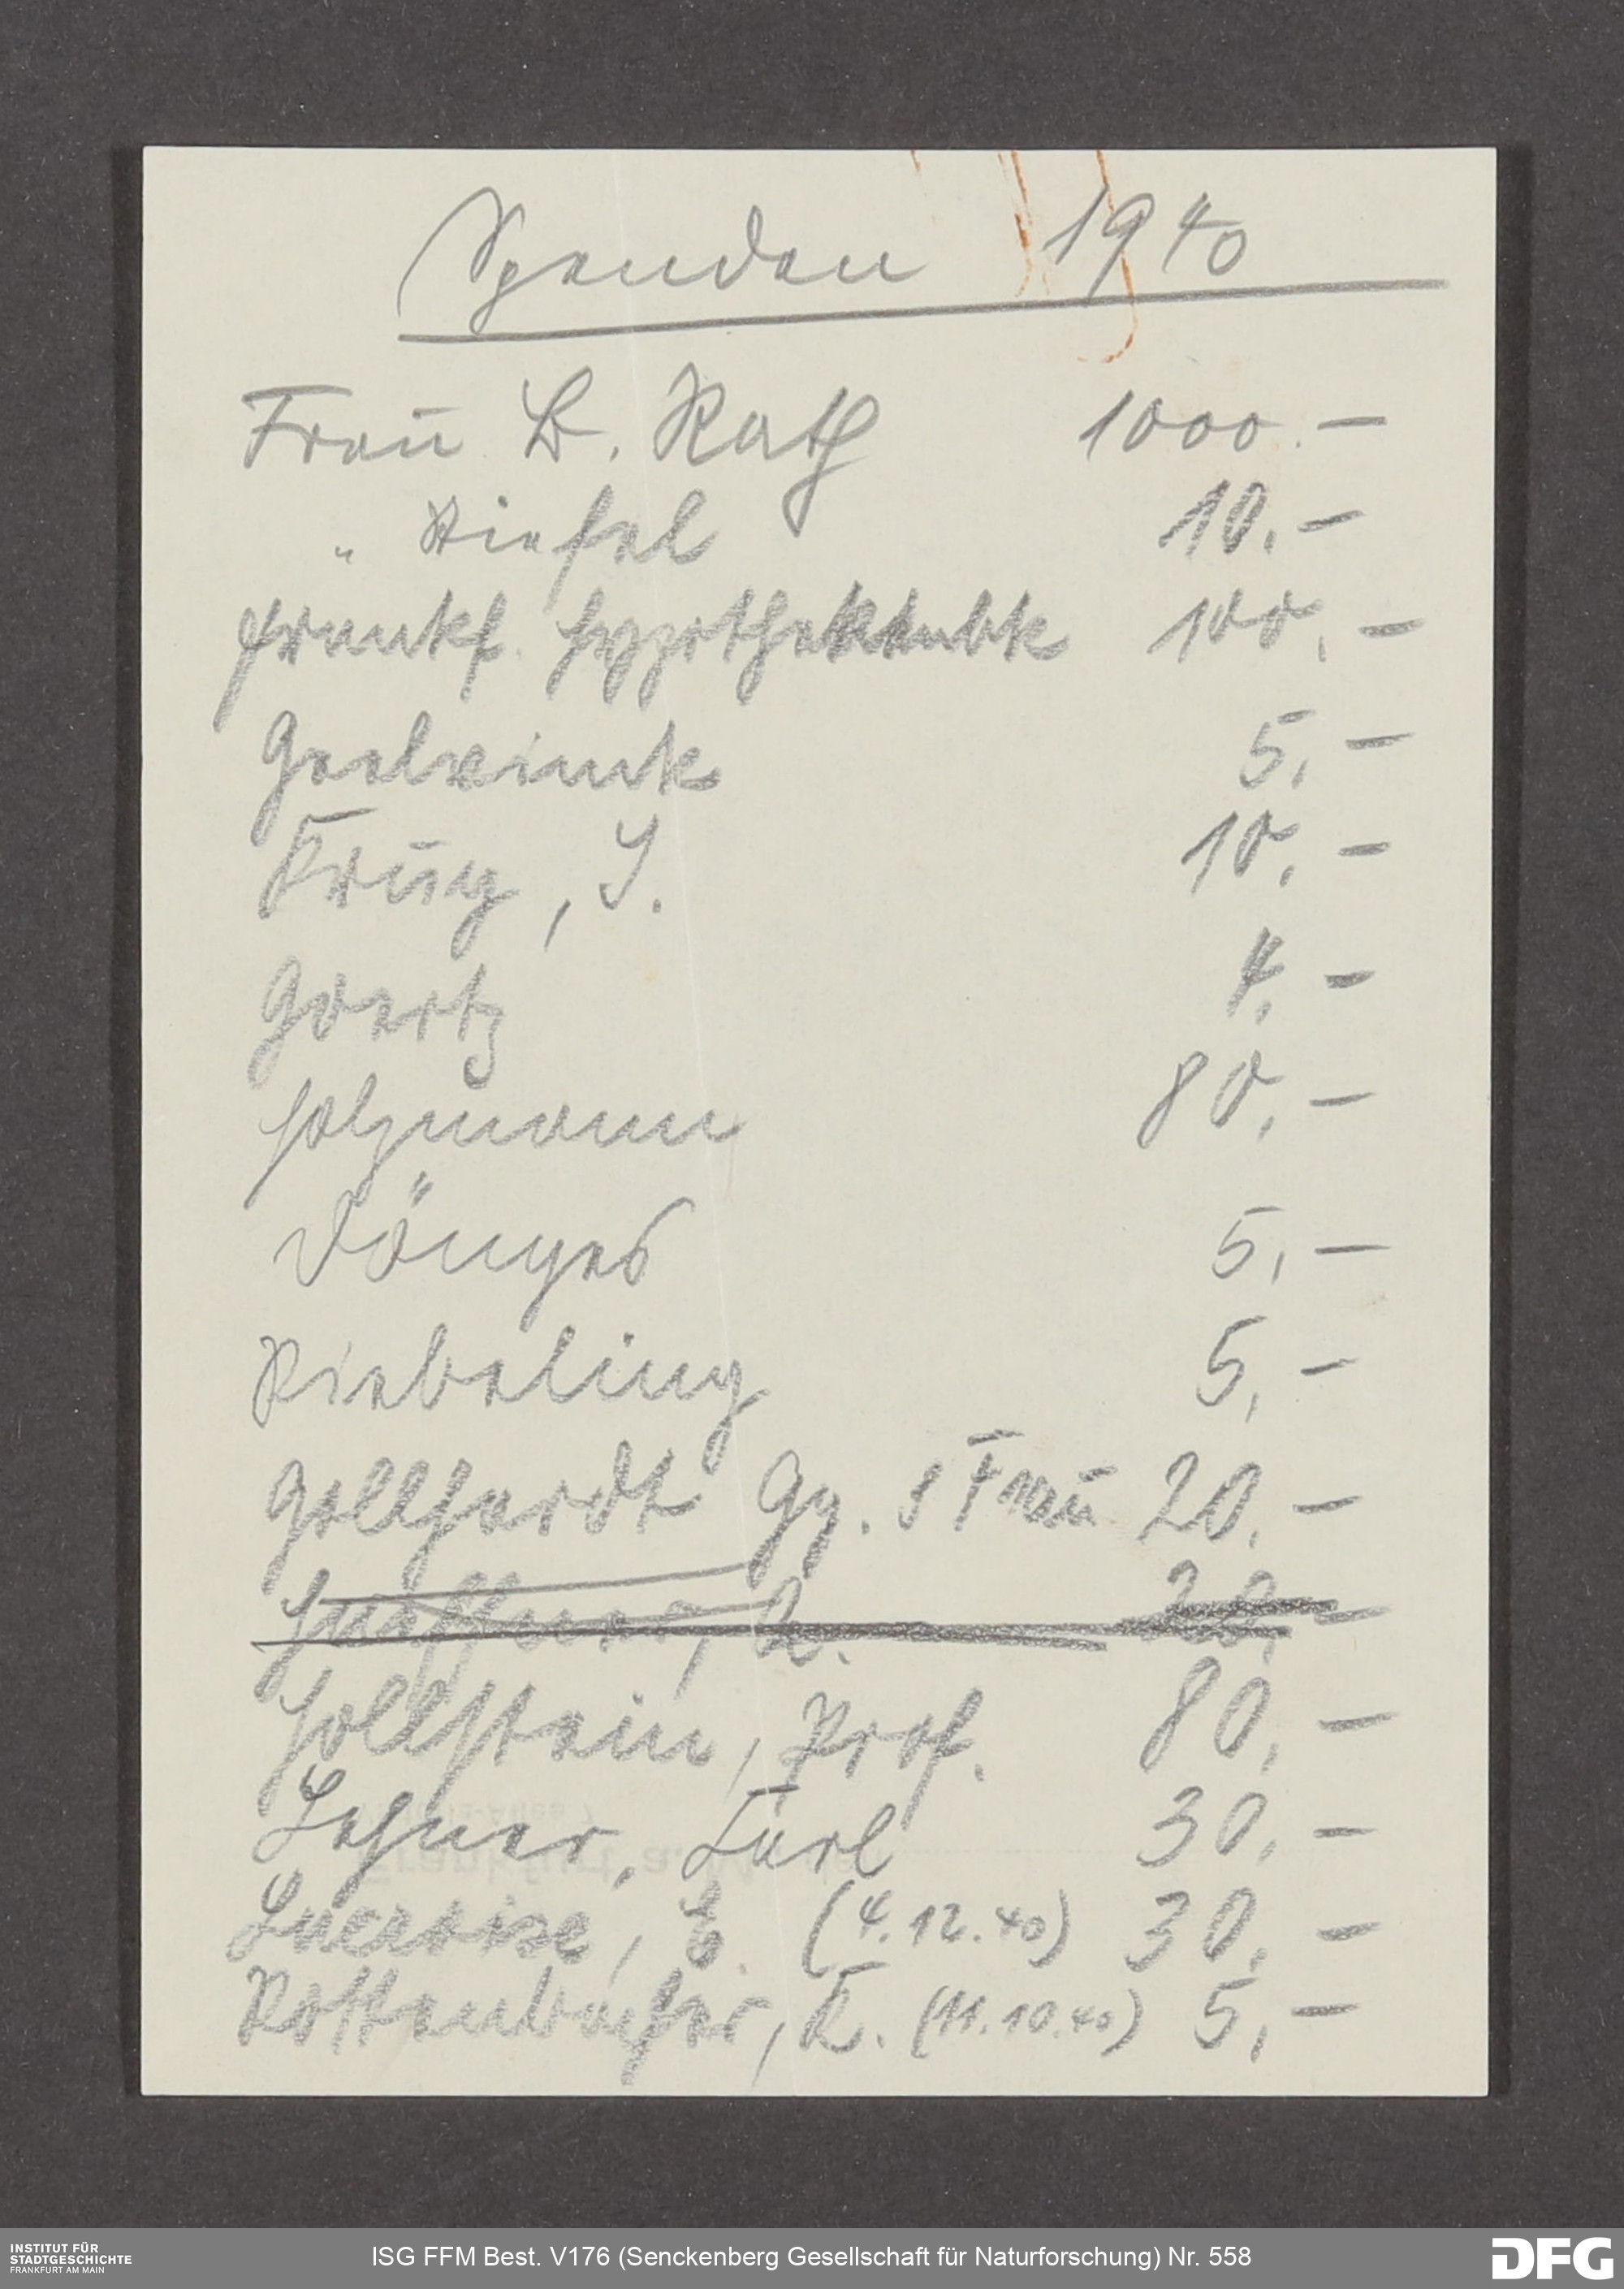 Spenden 1940
Frau B. Rath 1000.—
" Kiefel 10.—
Frankf. Hypothekenbk 100.—
Geelvink 5,—
Krug, J. 10,—
Goertz 4,—
Holzmann 80,—
Dönges 5,—
Riebeling 5,—
Gollhardt Gg. & Frau 20,—
20,—
Hollstein, Prof. 80,—
Lehner, Karl 30,—
Lucroise, E. (4.12.40) 30,—
Rottenbacher, K. (11.10.40) 5,—
INSTITUT FÜR
STADTGESCHICHTE
FRANKFURT AM MAIN
ISG FFM Best. V176 (Senckenberg Gesellschaft für Naturforschung) Nr. 558
DFG